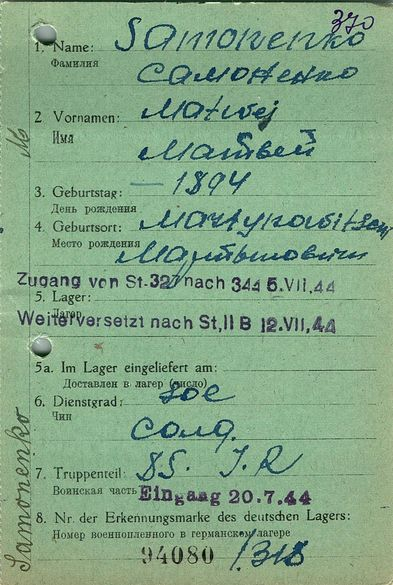 370
1. Name: Samonenko
Фамилия
Самоненко
2 Vornamen: Matwej
Имя
Матвей
3. Geburtstag: — 1894
День рождения
4. Geburtsort:
Место рождения
Zugang von St-327 nach 344 5.VII,44
5. Lager:
Лагерь
Weiterversetzt nach St,II B 12.VII,44
5a. Im Lager eingeliefert am:
Доставлен в лагерь (число)
6. Dienstgrad:
Чин
Солд.
7. Truppenteil: 85. J.R
Воинская часть Eingang 20.7.44
8. Nr. der Erkennungsmarke des deutschen Lagers:
Номер военнопленного в германском лагере
94080 /318
Samonenko